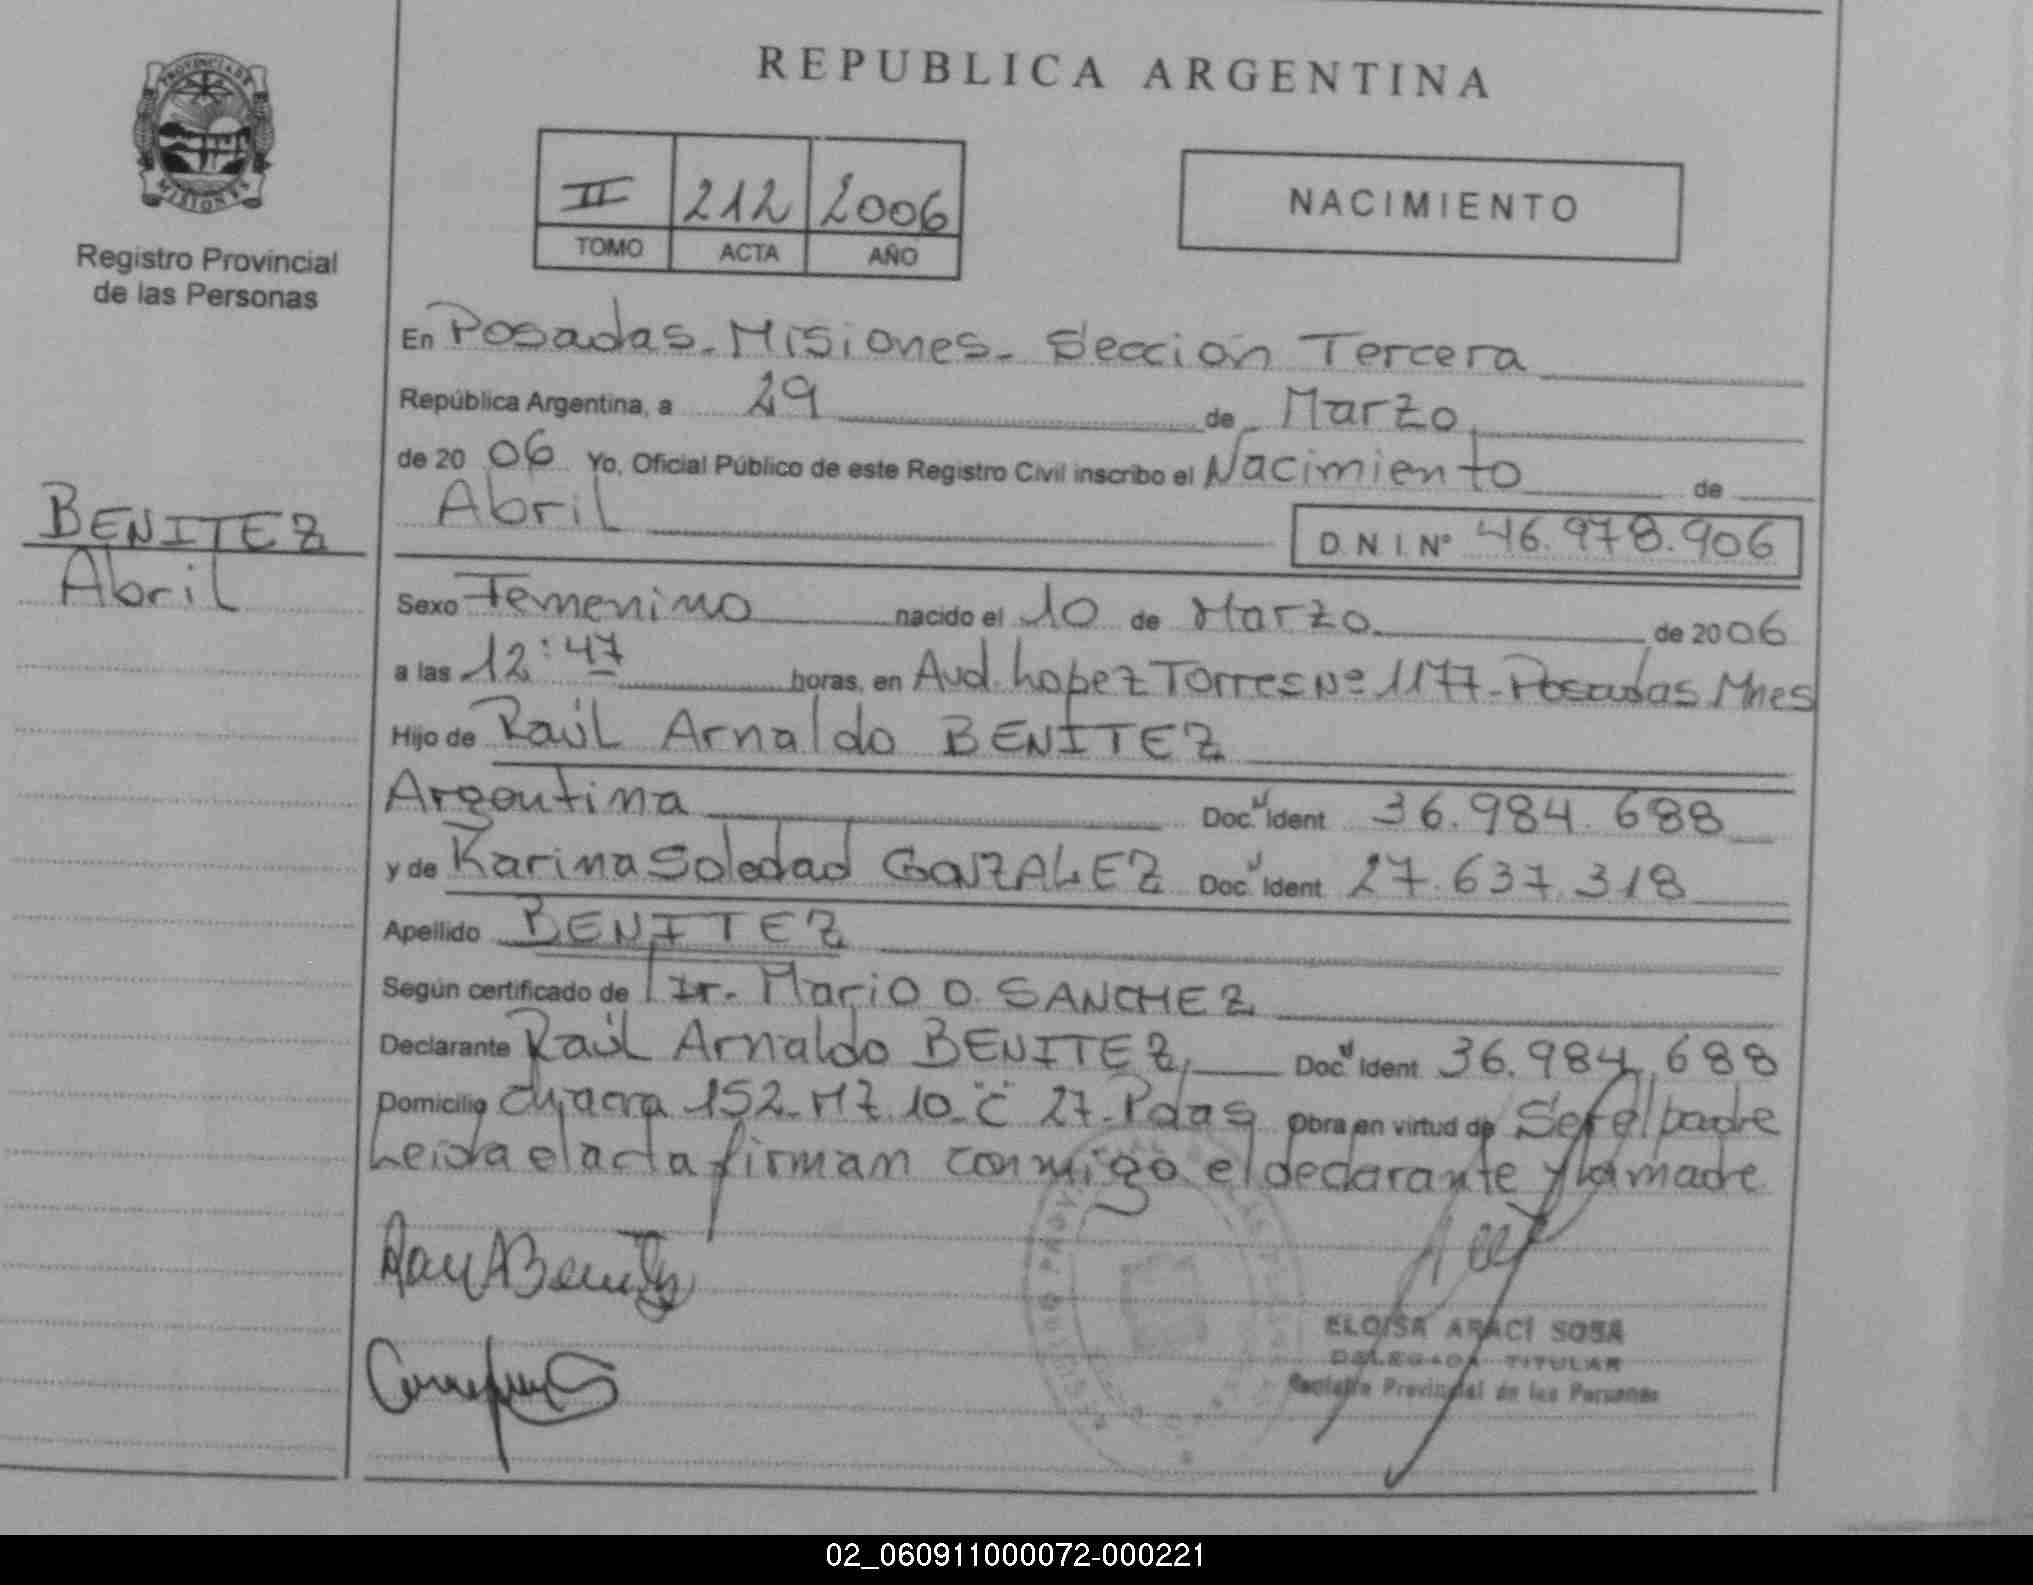 PROVINCIA DE
MISIONES
Registro Provincial
de las Personas
BENITEZ
Abril
REPUBLICA ARGENTINA
II 212 2006
TOMO ACTA AÑO
NACIMIENTO
En Posadas. Misiones. Sección Tercera
República Argentina, a 29 de Marzo
de 20 06 Yo, Oficial Público de este Registro Civil inscribo el Nacimiento de
Abril D.N.I. Nº 46.978.906
Sexo Femenino nacido el 10 de Marzo de 20 06
a las 12:47 horas, en Avd. Lopez Torres Nº 1177 - Posadas Mnes
Hijo de Raúl Arnaldo BENITEZ
Argentina Doc. Ident 36.984.688
y de Karina Soledad GONZALEZ Doc. Ident 27.637.318
Apellido BENITEZ
Según certificado de Dr. Mario O. SANCHEZ
Declarante Raúl Arnaldo BENITEZ Doc. Ident 36.984.688
Domicilio chacra 152 - Mz 10 - C 27 - Pdas Obra en virtud de Ser el padre
Leida el acta firman conmigo el declarante y la madre
Raul A Benitez
ELOISA ARACI SOSA
DELEGADA TITULAR
Registro Provincial de las Personas
02_060911000072-000221